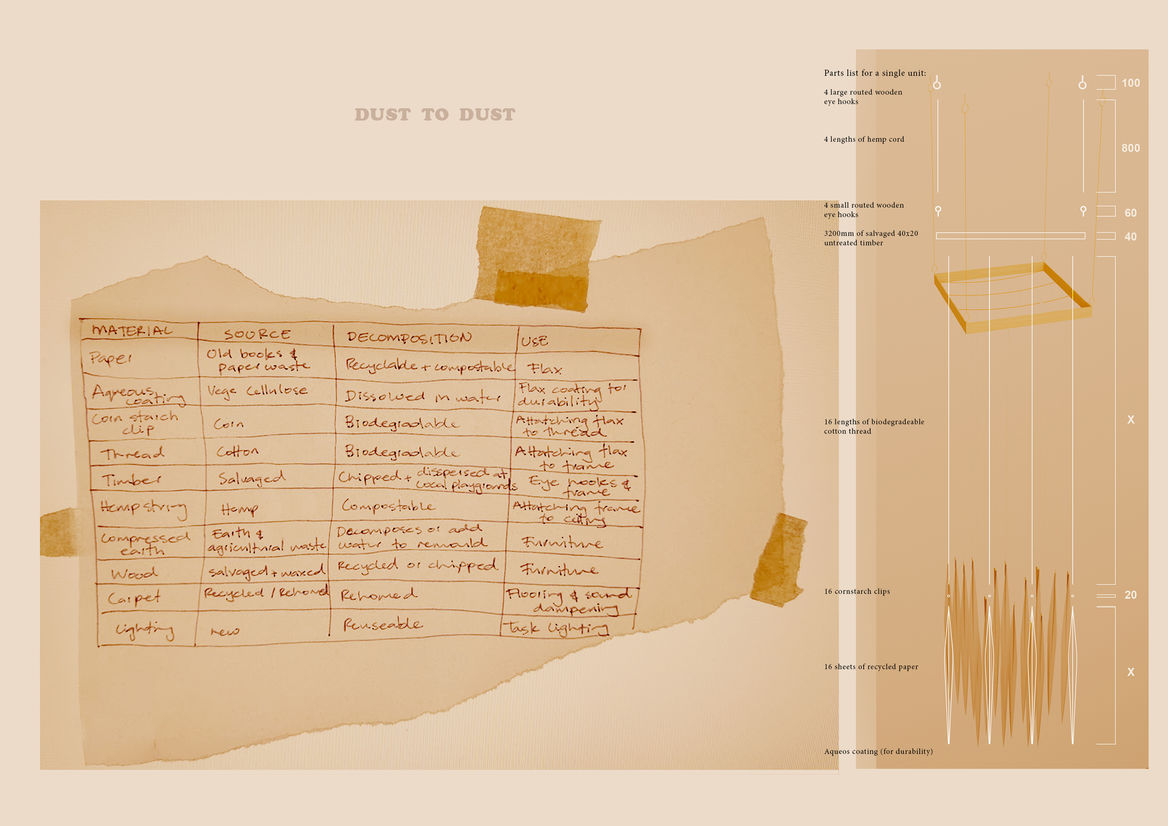 DUST TO DUST
MATERIAL SOURCE DECOMPOSITION USE
Paper Old books & paper waste Recyclable + compostable Flax
Aqeous coating Vege Cellulose Dissolved in water Flax coating for durability
Corn starch clip Corn Biodegradable Attatching flax to thread
Thread Cotton Biodegradable Attatching flax to frame
Timber Salvaged Chipped + disspersed at local playgrounds Eye hooks & frame
Hemp string Hemp Compostable Attatching frame to ceiling
Compressed earth Earth & agricultural waste Decomposes or add water to remould Furniture
Wood salvaged + waxed Recycled or chipped Furniture
Carpet Recycled / Rehomed Rehomed Flooring & sound dampening
Lighting new Reuseable Task lighting
Parts list for a single unit:
4 large routed wooden
eye hooks
100
4 lengths of hemp cord
800
4 small routed wooden
eye hooks
60
3200mm of salvaged 40x20
untreated timber
40
16 lengths of biodegradeable
cotton thread
X
16 cornstarch clips
20
16 sheets of recycled paper
X
Aqueos coating (for durability)